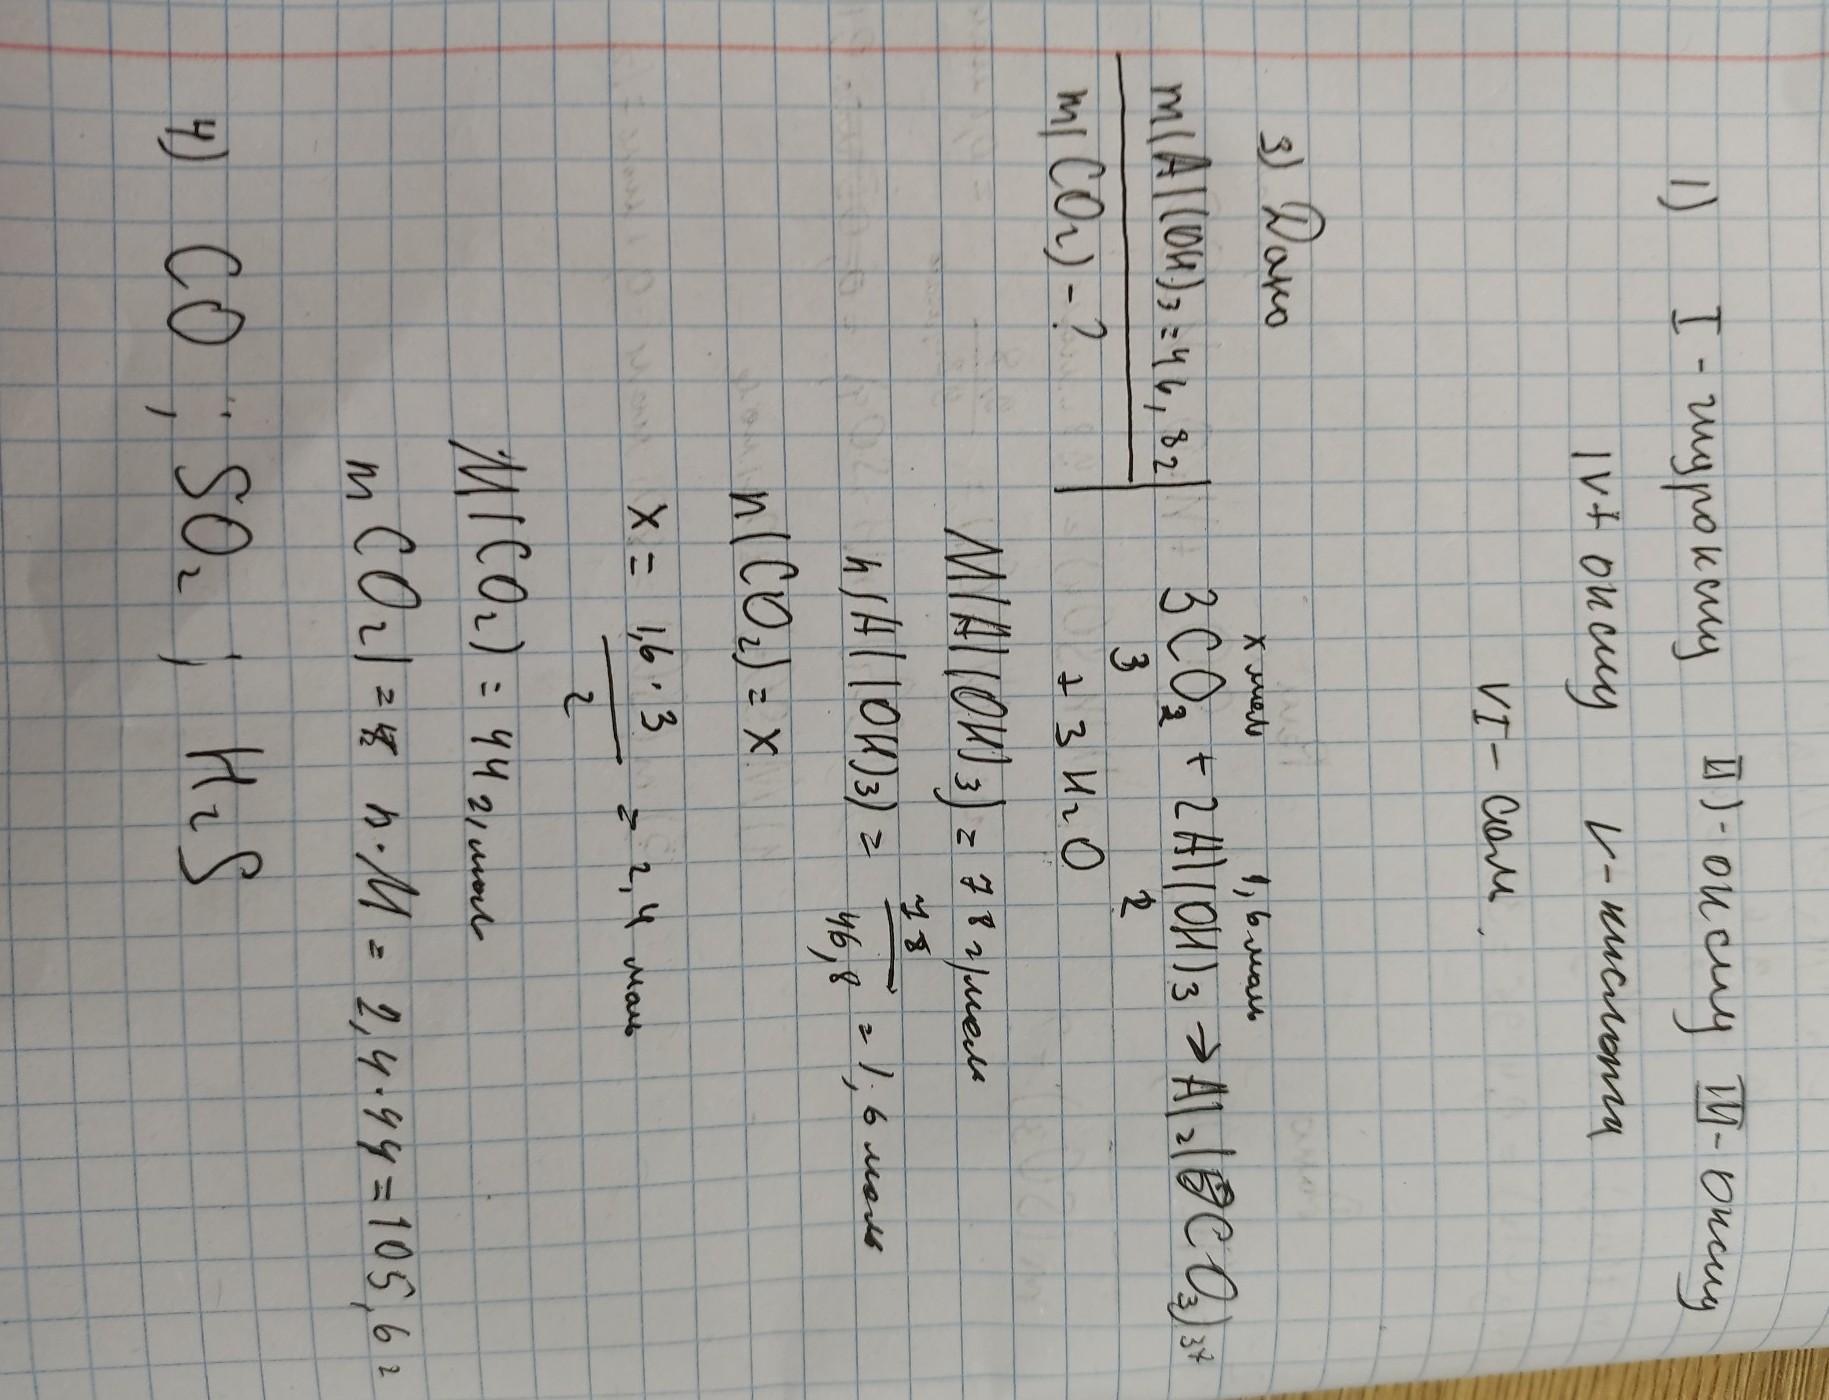 1) I - гидроксид II) - оксид III - оксид
IV + оксид V - кислота
VI - соли.
3) Дано
m(Al(OH)3 = 46,8г
m(CO2) - ?
x моль 1,6 моль
3CO2 + 2Al(OH)3 → Al2(CO3)3+
3 2
+ 3H2O
M(Al(OH)3) = 78 г/моль
n(Al(OH)3) = 78/46,8 = 1,6 моль
n(CO2) = x
x = 1,6·3/2 = 2,4 моль
M(CO2) = 44 г/моль
m CO2) = n·M = 2,4·44 = 105,6 г
4) CO ; SO2 ; H2S